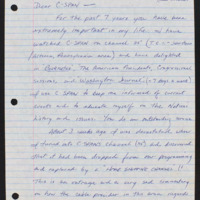 Dear C-SPAN —
For the past 7 years you have been
extremely important in my life. I have
watched C-SPAN on channel
and have delighted
in Booknotes, The American Presidents, Congressional
sessions and Washington Journal — (7 days a week)
of use C-SPAN to keep me informed of current
events and to educate myself in the Nation's
history and issues. You do an outstanding service.
About 2 weeks ago
I tuned into C-SPAN's channel and learned
that it had been dropped from our programming
and replaced by a HOME SHOPPING CHANNEL!!
This is an outrage and a very sad commentary
on how the cable provider in the area regards